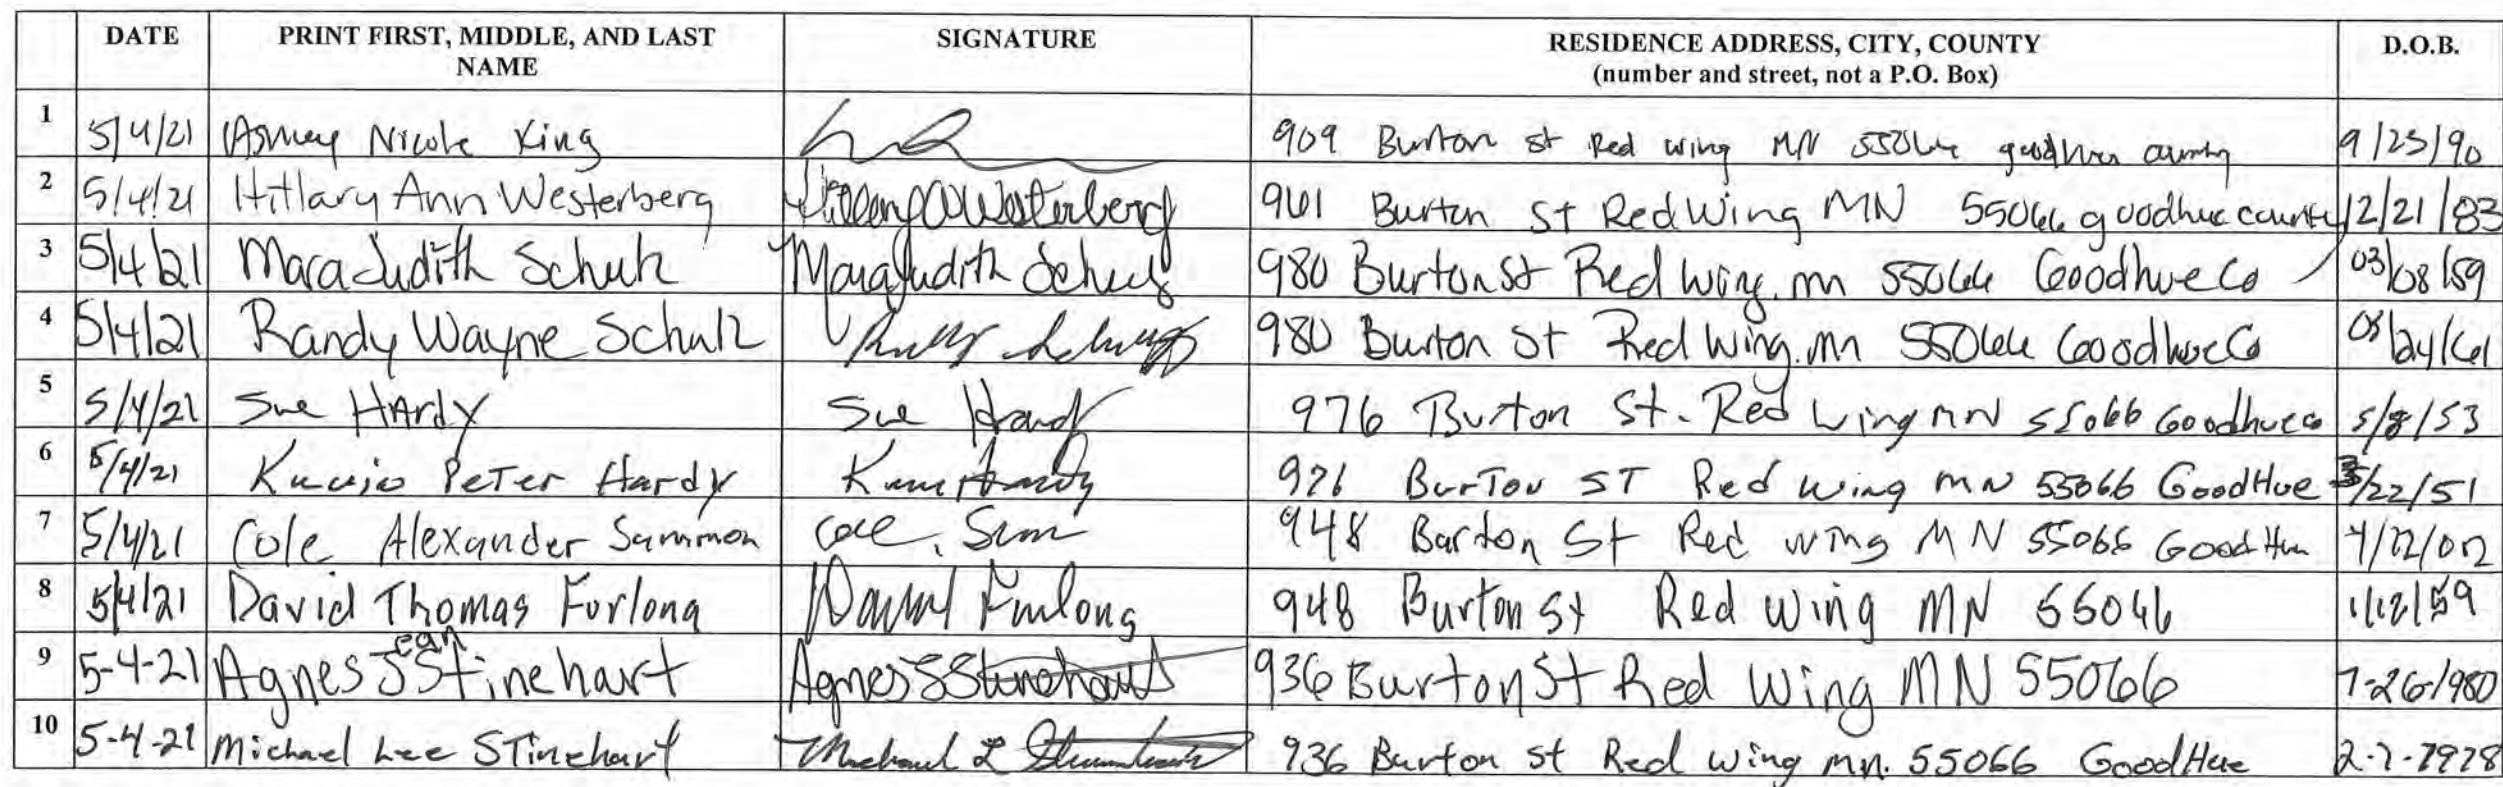 DATE PRINT FIRST, MIDDLE, AND LAST NAME SIGNATURE RESIDENCE ADDRESS, CITY, COUNTY (number and street, not a P.O. Box) D.O.B.
1 5/4/21 Ashley Nicole King 909 Burton St Red Wing MN 55066 goodhue county 9/25/90
2 5/4/21 Hillary Ann Westerberg Hillary A Westerberg 961 Burton St Red Wing MN 55066 goodhue county 12/21/83
3 5/4/21 Mara Judith Schulz Mara Judith Schulz 980 Burton St Red Wing, mn 55066 Goodhue Co 03/08/59
4 5/4/21 Randy Wayne Schulz 980 Burton St Red Wing, mn 55066 Goodhue Co 08/24/61
5 5/4/21 Sue HArdy Sue Hardy 976 Burton St. Red Wing MN 55066 Goodhue co 5/8/53
6 5/4/21 Peter Hardy Hardy 976 Burton ST Red Wing MN 55066 GoodHue /22/51
7 5/4/21 Cole Alexander Sammon Cole 948 Burton St Red Wing MN 55066 GoodHue
8 5/4/21 David Thomas Furlong David Furlong 948 Burton St Red Wing MN 55066 1/12/59
9 5-4-21 Agnes Jean Stinehart Agnes J Stinehart 936 Burton St Red Wing MN 55066 7-26-1980
10 5-4-21 Michael Lee Stinehart Michael L Stinehart 936 Burton St Red Wing mn. 55066 GoodHue 2-7-1978